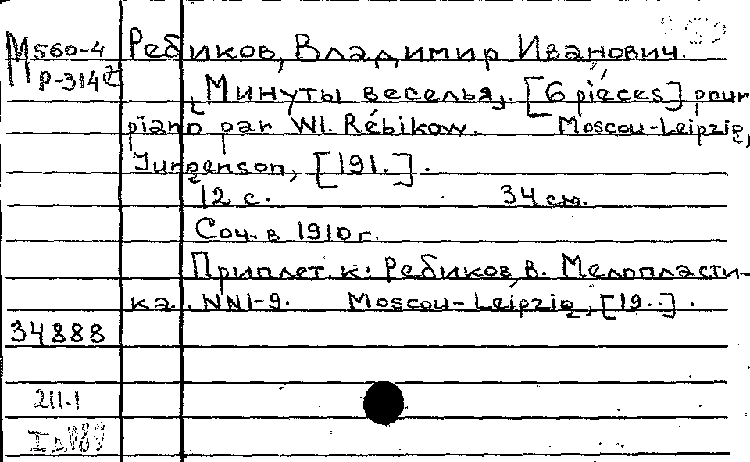 М560-4 Ребиков, Владимир Иванович.
Р-314
„Минуты веселья„. [6 pièces] pour
piano par Wl. Rébikow. Moscou-Leipzig,
Jurgenson, [191.].
12 с. 34 см.
Соч. в 1910 г.
Приплет. к: Ребиков, В. Мелопласти-
ка. NN1-9. Moscou-Leipzig, [19..].
34888
211-1